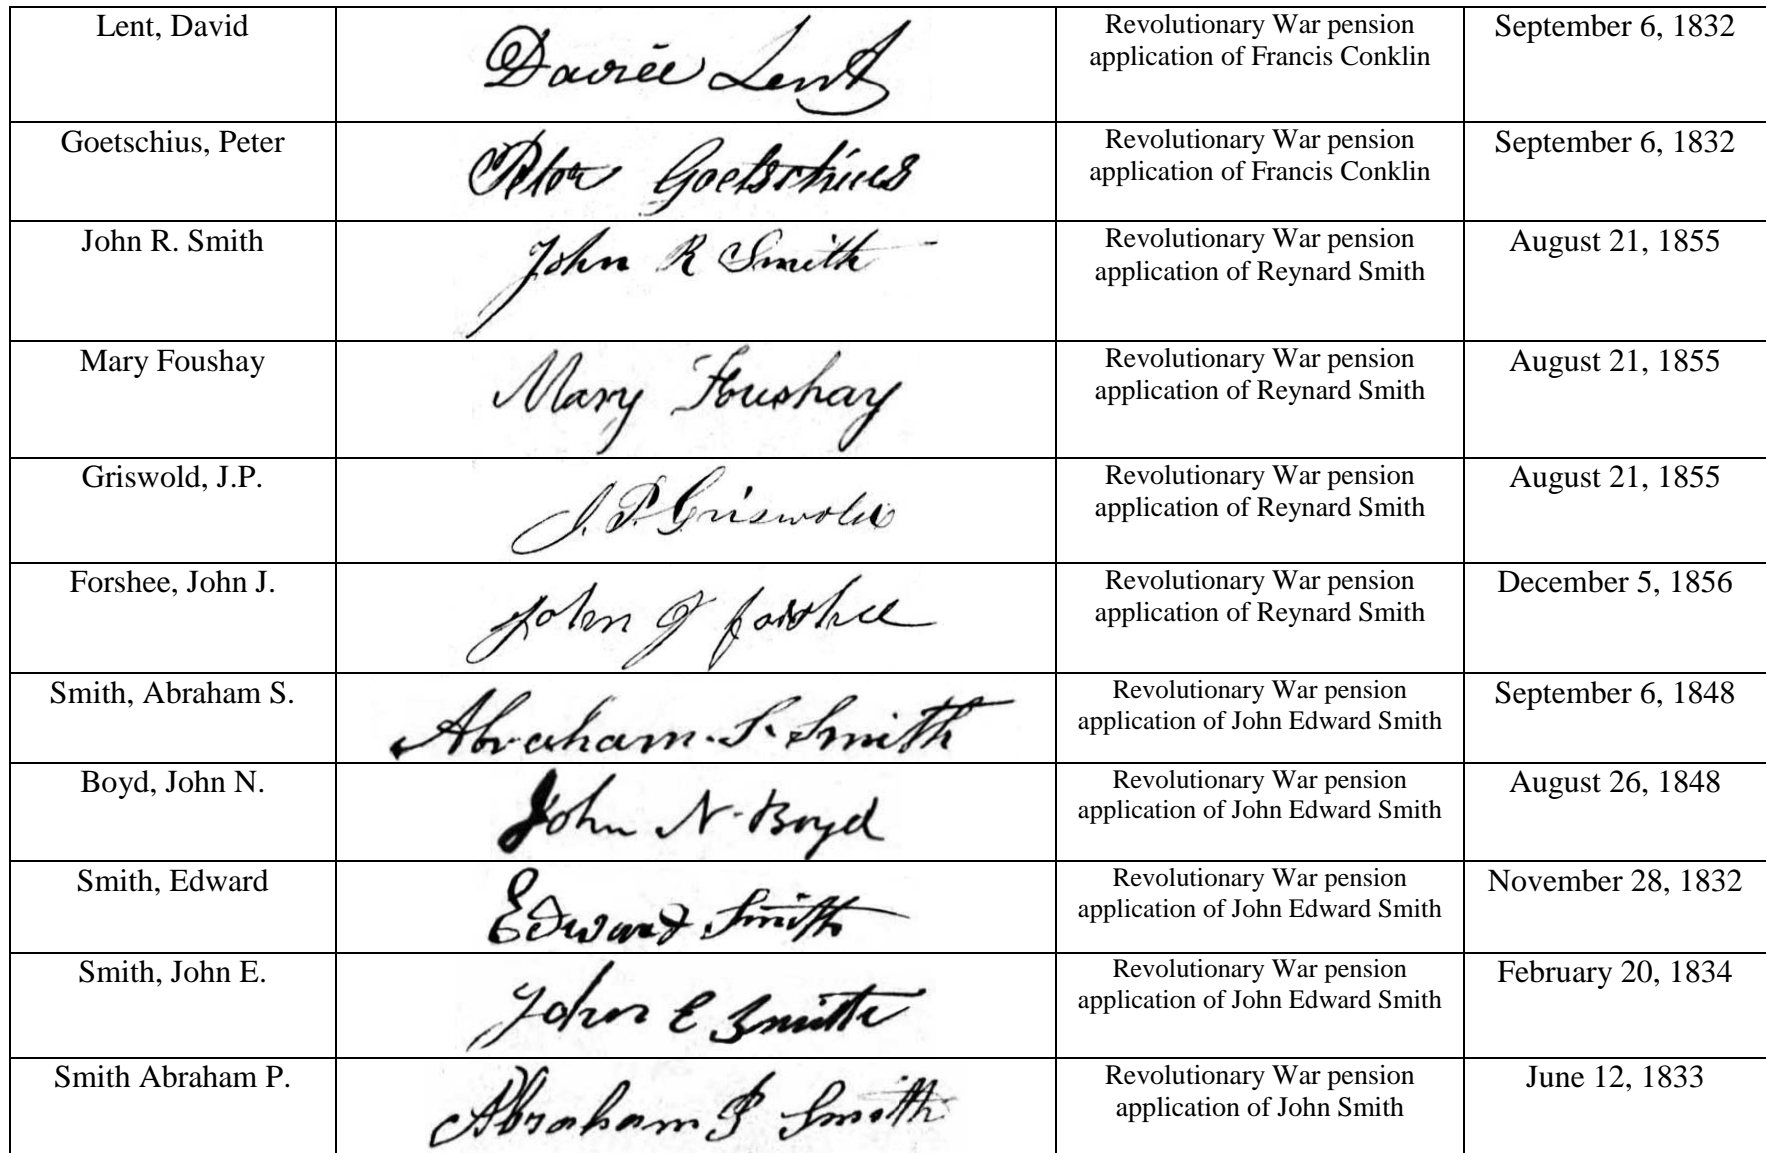 Lent, David
David Lent
Revolutionary War pension
application of Francis Conklin
September 6, 1832
Goetschius, Peter
Peter Goetschius
Revolutionary War pension
application of Francis Conklin
September 6, 1832
John R. Smith
John R Smith
Revolutionary War pension
application of Reynard Smith
August 21, 1855
Mary Foushay
Mary Foushay
Revolutionary War pension
application of Reynard Smith
August 21, 1855
Griswold, J.P.
J. P. Griswold
Revolutionary War pension
application of Reynard Smith
August 21, 1855
Forshee, John J.
John J forshee
Revolutionary War pension
application of Reynard Smith
December 5, 1856
Smith, Abraham S.
Abraham. S. Smith
Revolutionary War pension
application of John Edward Smith
September 6, 1848
Boyd, John N.
John N. Boyd
Revolutionary War pension
application of John Edward Smith
August 26, 1848
Smith, Edward
Edward Smith
Revolutionary War pension
application of John Edward Smith
November 28, 1832
Smith, John E.
John E Smith
Revolutionary War pension
application of John Edward Smith
February 20, 1834
Smith Abraham P.
Abraham P Smith
Revolutionary War pension
application of John Smith
June 12, 1833